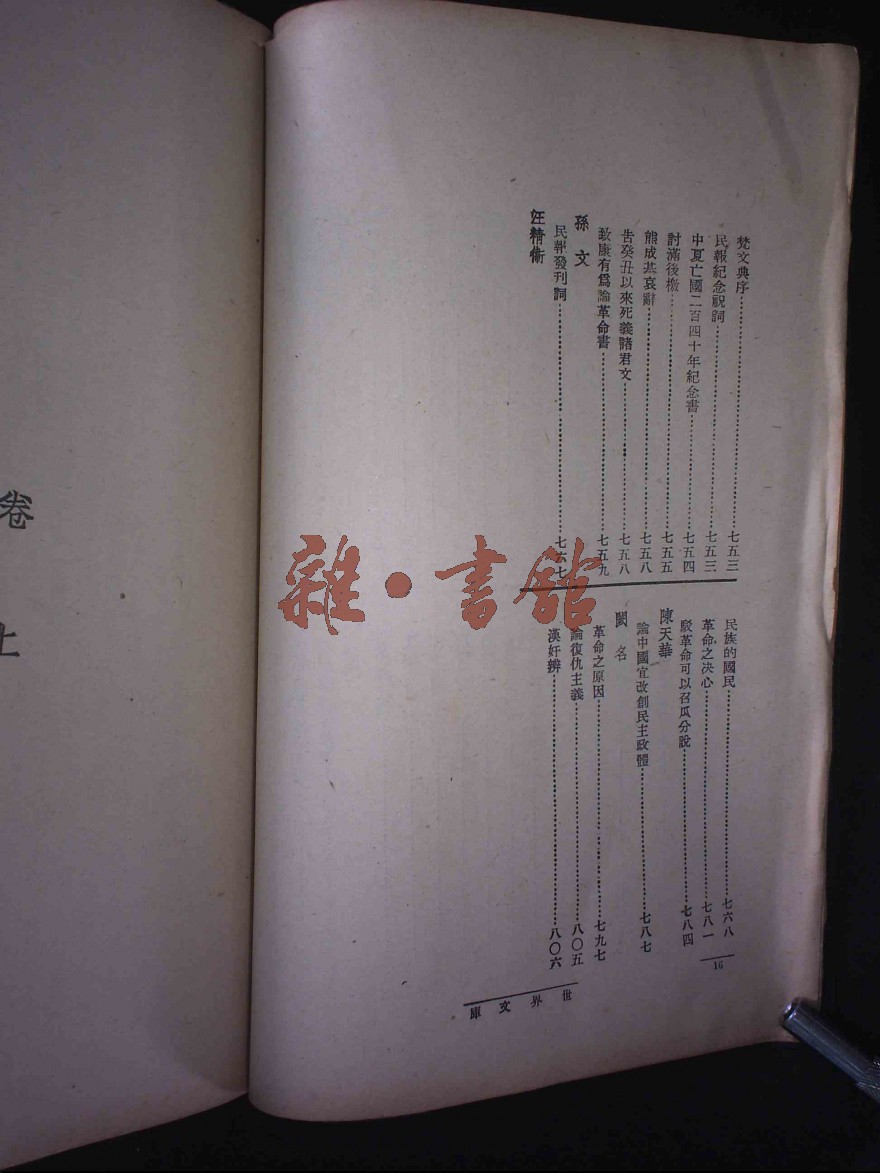 梵文典序⋯⋯七五三
民報紀念祝詞⋯⋯七五三
中夏亡國二百四十年紀念書⋯⋯七五四
討滿後檄⋯⋯七五五
熊成基哀辭⋯⋯七五八
告癸丑以來死義諸君文⋯⋯七五八
致康有爲論革命書⋯⋯七五九
孫文
民報發刊詞⋯⋯七六七
汪精衛
民族的國民⋯⋯七六八
革命之決心⋯⋯七八一
駁革命可以召瓜分說⋯⋯七八四
陳天華
論中國宜改創民主政體⋯⋯七八七
闕名
革命之原因⋯⋯七九七
論復仇主義⋯⋯八〇五
漢奸辨⋯⋯八〇六
16
世界文庫
卷
上
雜·書館